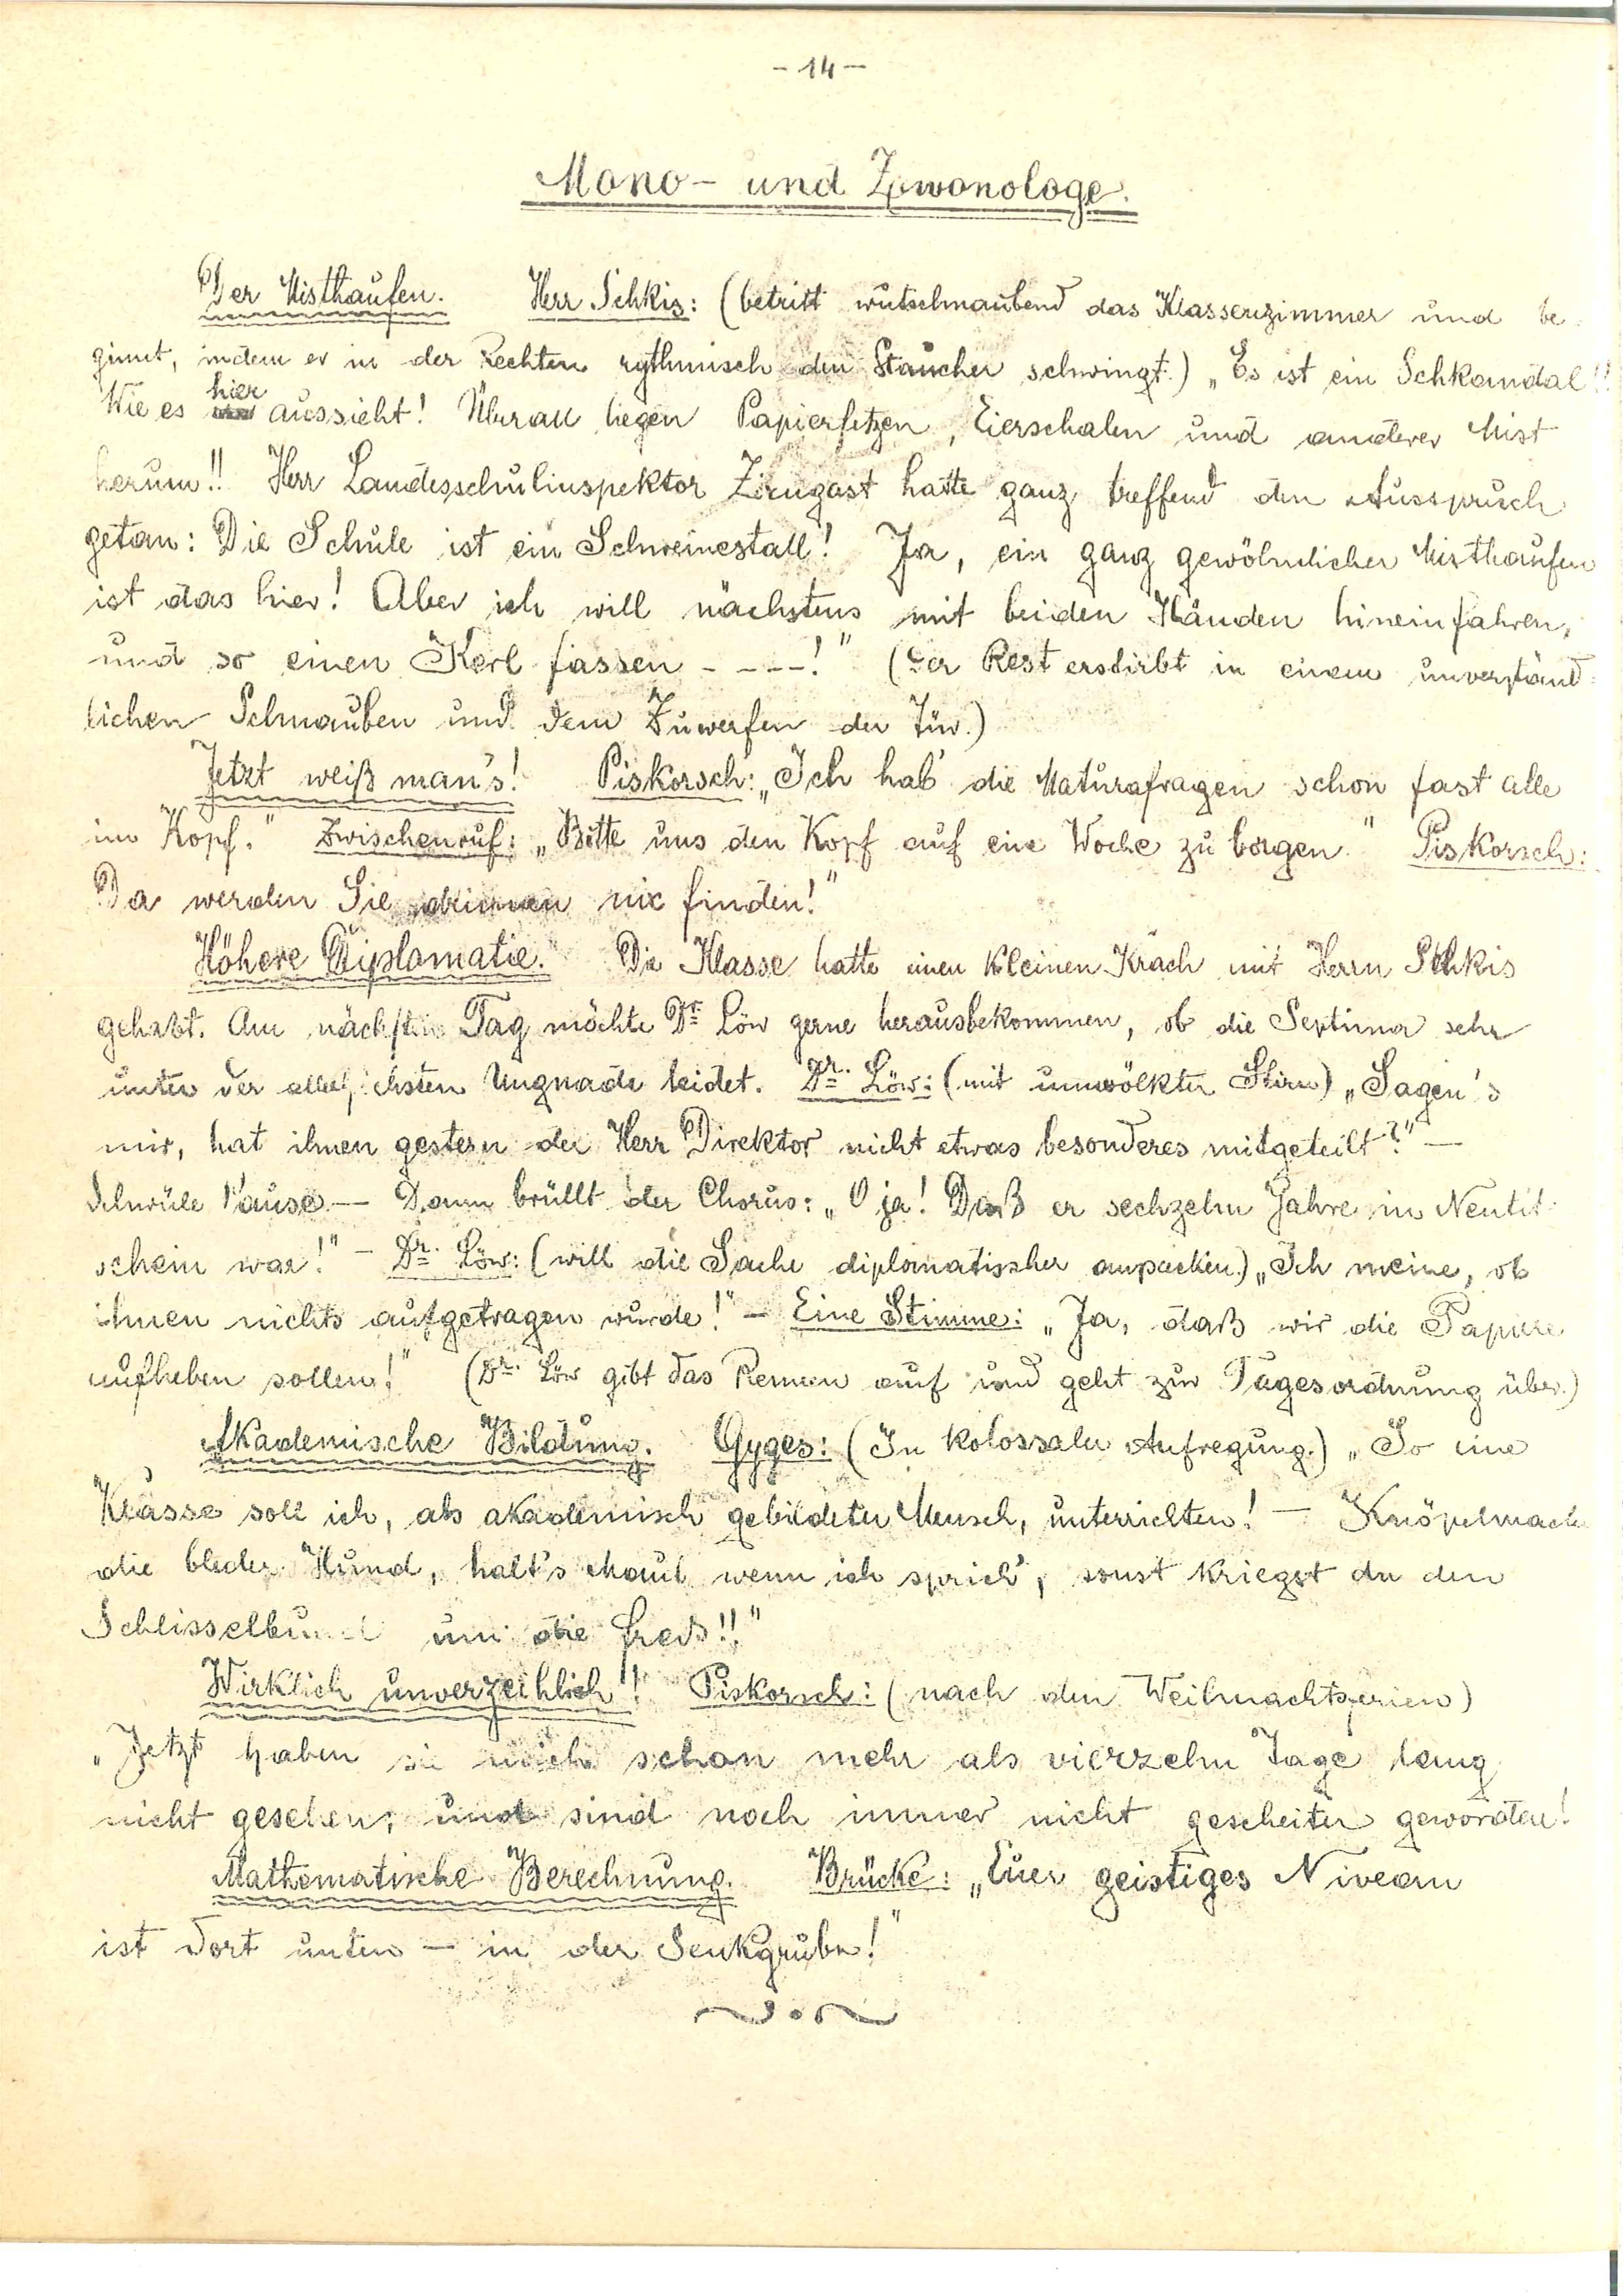 - 14 -
Mono- und Zwonologe.
Der Misthaufen. Herr Schkis: (betritt wutschnaubend das Klassenzimmer und be-
ginnt, indem er in der Rechten rythmisch den Staucher schwingt.) „Es ist ein Schkandal!!
Wie es hier aussieht! Überall liegen Papierfetzen, Eierschalen und anderer Mist
herum!! Herr Landesschulinspektor hatte ganz treffend den Ausspruch
getan: Die Schule ist ein Schweinestall! Ja, ein ganz gewöhnlicher Misthaufen
ist das hier! Aber ich will nächstens mit beiden Händen hineinfahren,
und so einen Kerl fassen - - - -!" (Der Rest erstirbt in einem unverständ-
lichen Schnauben und dem Zuwerfen der Tür.)
Jetzt weiß man's! Piskorsch: „Ich hab' die Maturafragen schon fast alle
im Kopf." Zwischenruf: „Bitte uns den Kopf auf eine Woche zu borgen." Piskorsch:
Da werden Sie drinnen nix finden!"
Höhere Diplomatie. Die Klasse hatte einen kleinen Krach mit Herrn Schkis
gehabt. Am nächsten Tag möchte Dr. Löw gerne herausbekommen, ob die Septima sehr
unter der Ungnade leidet. Dr. Löw: (mit umwölkter Stirn) „Sagen's
mir, hat ihnen gestern der Herr Direktor nicht etwas besonderes mitgeteilt?" —
Schwüle Pause — Dann brüllt der Chorus: „O ja! Daß er sechzehn Jahre in Neutit-
schein war!" — Dr. Löw: (will die Sache diplomatischer anpacken.) „Ich meine, ob
ihnen nichts aufgetragen wurde!" — Eine Stimme: „Ja, daß wir die Papiere
aufheben sollen!" (Dr. Löw gibt das Rennen auf und geht zur Tagesordnung über.)
Akademische Bildung. Gyges: (In kolossaler Aufregung.) „So eine
Klasse soll ich, als akademisch gebildeter Mensch, unterrichten! — Knöpelmach
die bleder Hund, halt's Maul wenn ich sprich', sonst kriegst du den
Schlisselbund um die Freß!!"
Wirklich unverzeihlich! Piskorsch: (nach den Weihnachtsferien)
„Jetzt haben sie mich schon mehr als vierzehn Tage lang
nicht gesehen, und sind noch immer nicht gescheiter geworden!
Mathematische Berechnung. Brücke: „Euer geistiges Niveau
ist dort unten — in der Senkgrube!"